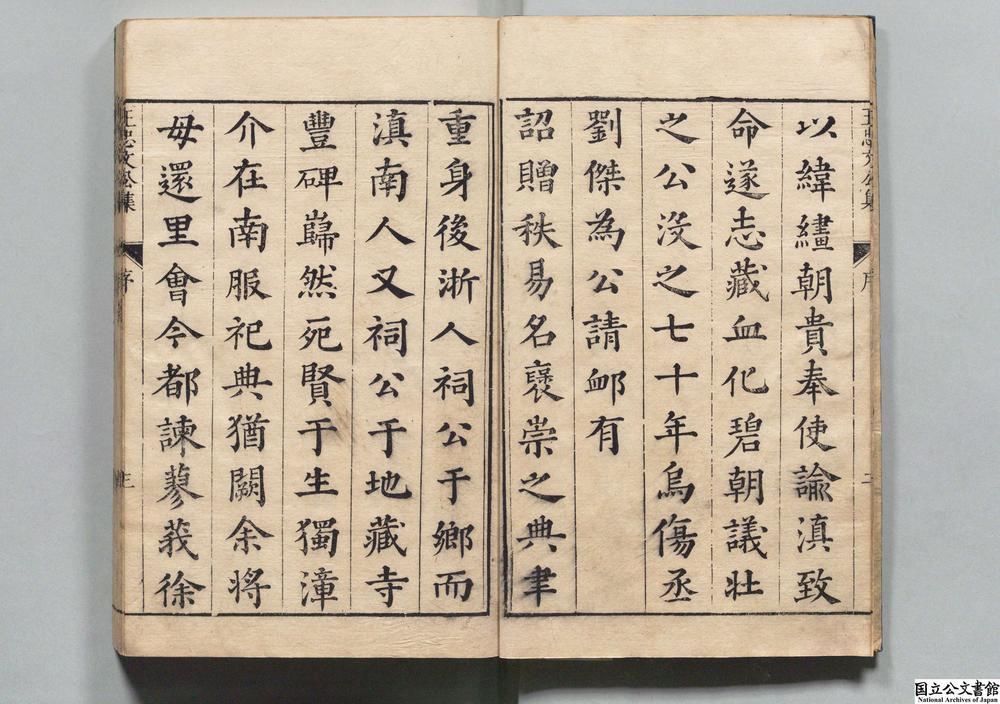 以緯繣朝貴奉使諭滇致
命遂志藏血化碧朝議壯
之公没之七十年烏傷丞
劉傑為公請邺有
詔贈秩易名襃崇之典聿
王忠文公集
序
重身後浙人祠公于鄉而
滇南人又祠公于地藏寺
豐碑巋然死賢于生獨漳
介在南服祀典猶闕余将
毋還里會今都諫蓼莪徐
王忠文公集
序
三
国立公文書館
National Archives of Japan